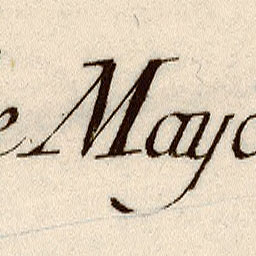 e Mayo